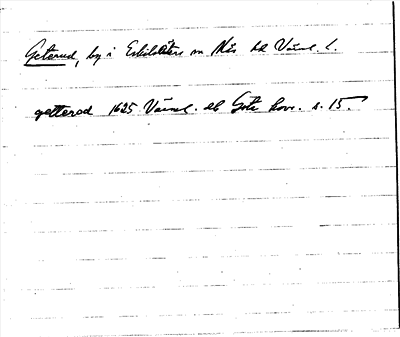 Getarud, by i Eskilsäters sn Näs hd Värml. l.
getterod 1625 Värml. Göt. hov. s. 15.